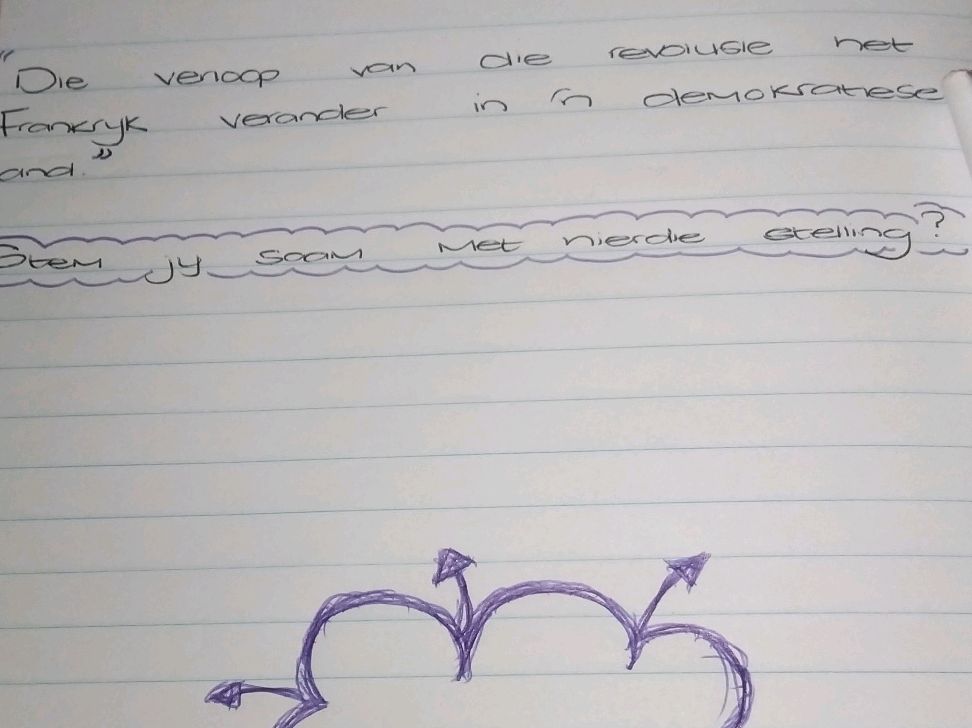 "Die verloop van die revolusie het
Frankryk verander in 'n demokratiese
land."
Stem jy saam met hierdie stelling?